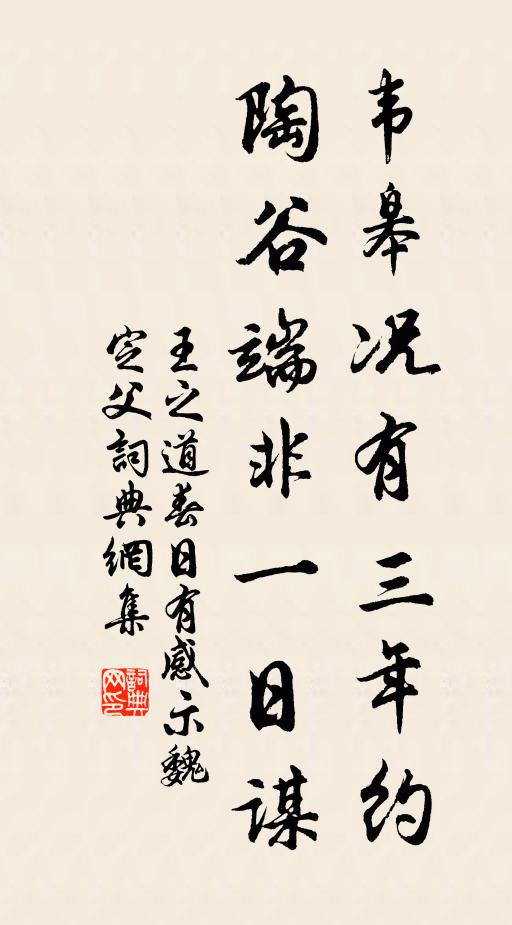 韦皋况有三年约
陶谷端非一日谋
王之道春日有感示魏
定父詞典網集
詞典
网印